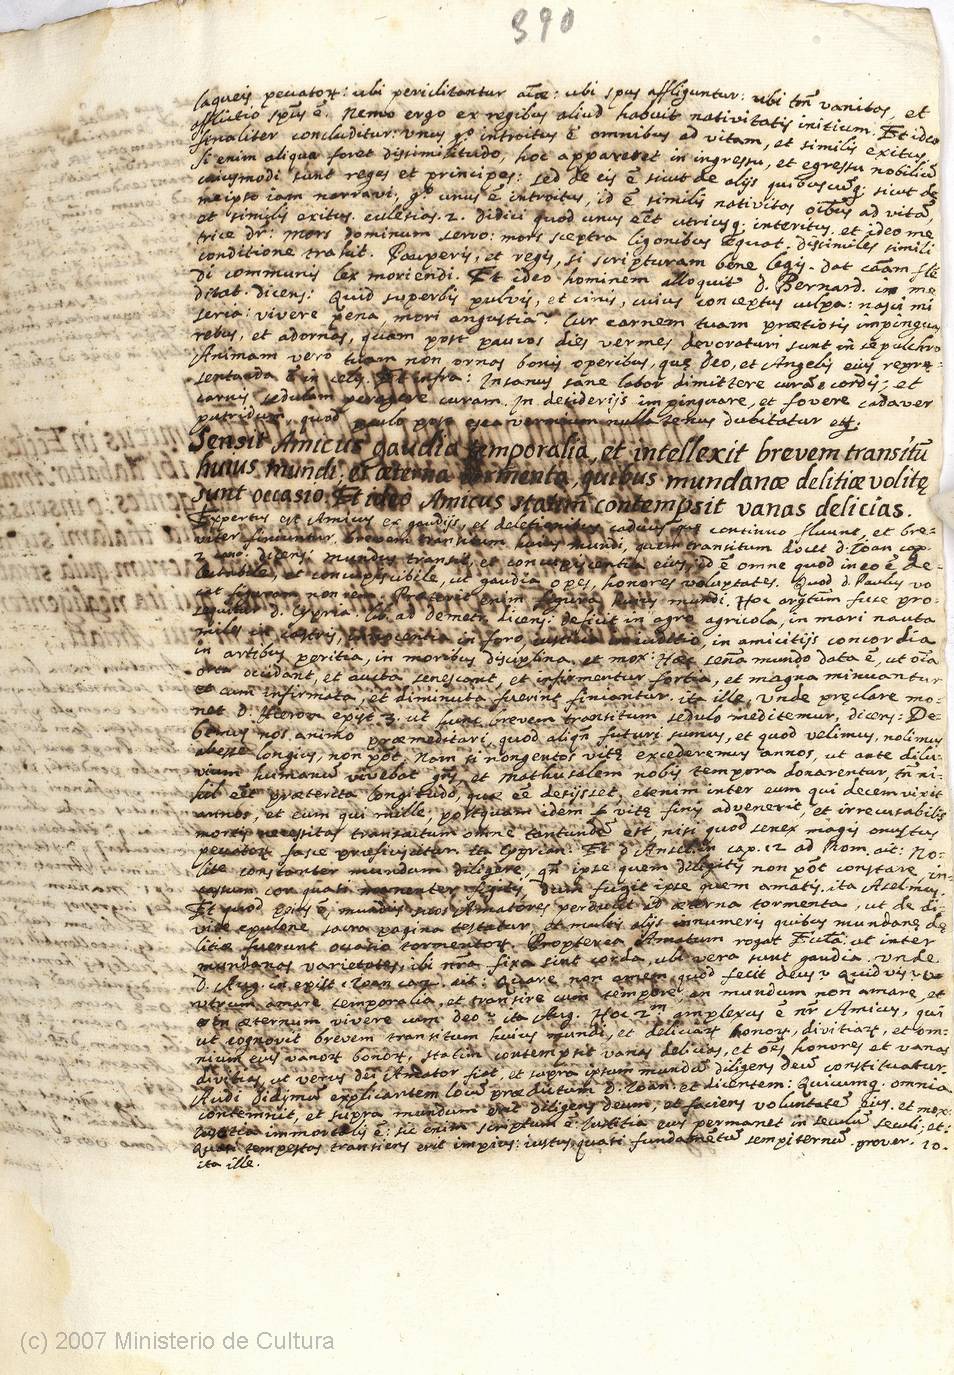 390
laqueis peccatorū: ubi periclitantur aīæ: ubi spūs affliguntur: ubi tm̄ vanitas, et
afflictio spūs ē. Nemo ergo ex regibus aliud habuit nativitatis initium. Et ideo
finaliter concluditur: vnus gº introitus ē omnibus ad vitam, et similis exitus.
Si enim aliqua foret dissimilitudo, hoc appareret in ingressu, et egressu nobiliū
cuiusmodi sunt reges et principes: sed de eis ē sicut de alijs quibuscūq; sicut de
meipso iam narravi. gº unus ē introitus, id ē similis nativitas oībus ad vitā,
et similis exitus. eclesias. 2. didici quod unus eēt utriusq; interitus. et ideo me
trice dr̄: mors dominum servo: mors sceptra ligonibus æquat. dissimiles simili
conditione trahit. Pauperis, et regis, si scripturam bene legis. dat cām fle
di communis lex moriendi. Et ideo hominem alloquit̄ d. Bernard. in me
ditat. dicens: Quid superbis pulvis, et cinis, cuius conceptus culpa: nasci mi
seria: vivere pena, mori angustia? Cur carnem tuam prætiosis impinguas
rebus, et adornas, quam post paucos dies vermes devoraturi sunt in sepulchro
Animam vero tuam non ornas bonis operibus, quę deo, et Angelis eius repræ-
sentanda ē in celis. Et infra: Insanus sane labor dimittere curā cordis; et
carnis sedulam peragere curam. In desiderijs impinguare, et fovere cadaver
putridum, quod paulo post esca vermium nulla tenus dubitatur eē;
Sensit Amicus gaudia temporalia, et intellexit brevem transitū
huius mundi, et æterna tormenta, quibus mundanæ delitiæ volitę
sunt occasio. Et ideo Amicus statim contempsit vanas delicias.
Expertus est Amicus ex gaudijs, et delectationibus caducis quæ continuo fluunt, et bre-
viter finiuntur, brevem transitum huius mundi, quem transitum docet d. Joan. cap.
2. canō. dicens: mundus transit, et concupiscentia eius, id ē omne quod in eo ē de-
lectabile, et concupiscibile, ut gaudia opes, honores voluptates. Quod d. Paulus vo
cat figuram non rem. Præterit enim figura huius mundi. Hoc argtum fuse pro-
sequitur d. Cypria. lib. ad demetr. dicens: deficit in agro agricola, in mari nauta
miles in castris, innocentia in foro, iustitia in iuditio, in amicitijs concordia
in artibus peritia, in moribus disciplina. et mox: Hæc senā mundo data ē, ut oīa
orta occidant, et aucta senescant, et infirmentur fortia, et magna minuantur
et cum infirmata, et diminuta fuerint finiantur. ita ille, Unde pręclare mo-
net d. Hieron. epist. 3. ut hunc brevem transitum sedulo meditemur, dicens: De-
bemus nos animo præmeditari, quod aliqn̄ futuri sumus, et quod velimus, nolimus
abesse longius, non pōt. Nam si nongentos vitę excederemus annos, ut ante dilu-
vium humanū vivebat gn̄s, et mathusalem nobis tempora donarentur, tn̄ ni-
hil eēt præterita longitudo, quæ eē desijsset, etenim inter eum qui decem vixit
annos, et eum qui mille, postquam idem vitę finis advenerit, et irrecusabilis
mortis necessitas transactum omne tantundē est, nisi quod senex magis onustus
peccatorū fasce proficiscitur. ita Cyprian. Et d Anselm. cap. 12 ad Rom. ait: No-
lite constanter mundum diligere, qn̄ ipse quem diligitis non pōt constare, in-
cassum cor quasi manentes figitis, dum fugit ipse quem amatis. ita Aselmus.
Et quod epitis ē, mundus suos Amatores perducit ad æterna tormenta, ut de di-
vite epulone sacra pagina testatur, et multis alijs innumeris quibus mundanę de
litiæ fuerunt occasio tormentorū. Propterea Amatum rogat Eccla: ut inter
mundanas varietates, ibi nrā fixa sint corda, ubi vera sunt gaudia. Unde
d. Aug. in epist. Joan can. ait: Quare non amem quod fecit deus? Quid vis? v-
utrum amare temporalia, et transire cum tempore, an mundum non amare, et
in æternum vivere cum deo? ita Aug. Hoc 2m amplexus ē nr̄ Amicus, qui
ut cognovit brevem transitum huius mundi, et deliciarū honorū, divitiarū, et om-
nium eius vanorū bonorū, statim contempsit vanas delicias, et oēs honores et vanas
divitias, ut verus dei Amator fiat, et supra ipsum mundū diligens deū constituatur.
Audi didimū explicantem locū prædictum d. Joan. et dicentem: Quicumq. omnia
contemnit, et supra mundum erit diligens deum, et faciens voluntatē eius. et mox:
Iustitia immortalis ē: sic enim scriptum ē: Iustitia eius permanet in seculū seculi; et:
Quasi tempestas transiens erit impius: iustus quasi fundamētū sempiternū. prover. 10.
ita ille.
(c) 2007 Ministerio de Cultura